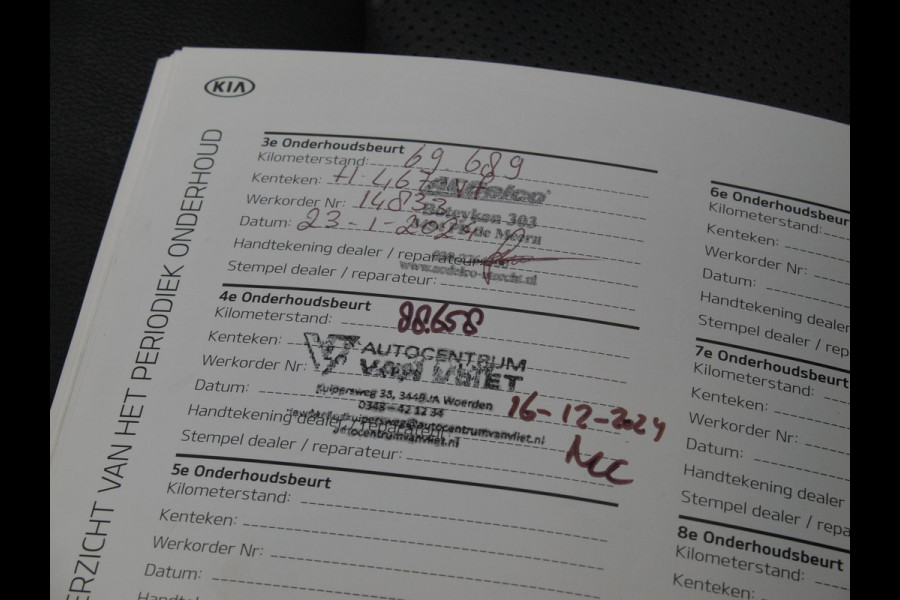 KIA
ERZICHT VAN HET PERIODIEK ONDERHOUD
3e Onderhoudsbeurt
Kilometerstand: 69 689
Kenteken:
Werkorder Nr: 14833
Datum: 23-1-2024
303
de Meern
Handtekening dealer / reparateur:
Stempel dealer / reparateur:
4e Onderhoudsbeurt
Kilometerstand: 88.658
Kenteken:
AUTOCENTRUM
VAN VLIET
Werkorder Nr:
Kuipersweg 35, 3449JA Woerden
Datum:
0348-42 12 34
16-12-2024
Handtekening dealer / reparateur:
autocentrumvanvliet.nl
Stempel dealer / reparateur:
5e Onderhoudsbeurt
Kilometerstand:
Kenteken:
Werkorder Nr:
Datum:
6e Onderhoudsbeur
Kilometerstand:
Kenteken:
Werkorder Nr:
Datum:
Handtekening dealer
Stempel dealer / rep
7e Onderhoudsbeurt
Kilometerstand:
Kenteken:
Werkorder Nr:
Datum:
Handtekening dealer
Stempel dealer / repa
8e Onderhoudsbeurt
Kilometerstand:
Kenteken: